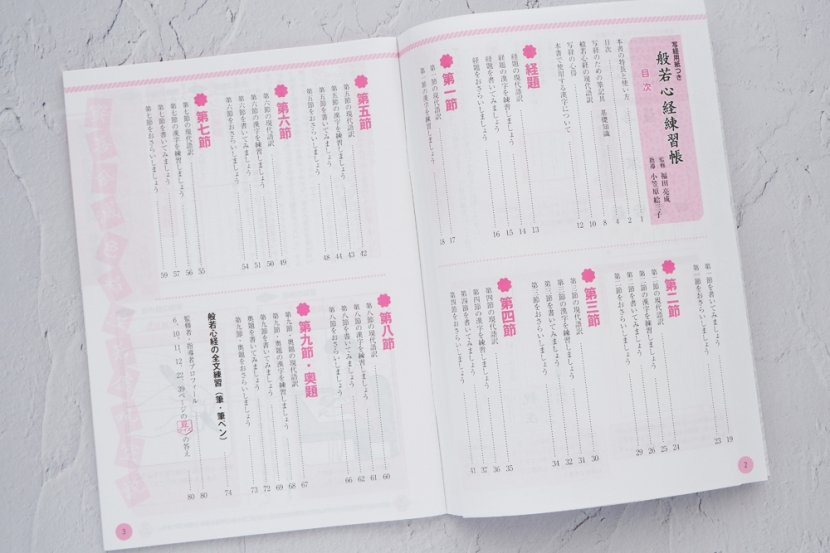 写経用紙つき
般若心経練習帳
目次
監修 福田亮成
指導 小笠原絵子
本書の特長と使い方 1
目次 2
写経のための筆記具 基礎知識 4
般若心経の現代語訳 8
写経の心得 10
本書で使用する漢字について 12
経題
経題の現代語訳 13
経題の漢字を練習しましょう 14
経題を書いてみましょう 15
経題をおさらいしましょう 16
第一節
第一節の現代語訳 17
第一節の漢字を練習しましょう 18
第一節を書いてみましょう 19
第一節をおさらいしましょう 23
第二節
第二節の現代語訳 24
第二節の漢字を練習しましょう 25
第二節を書いてみましょう 26
第二節をおさらいしましょう 29
第三節
第三節の現代語訳 30
第三節の漢字を練習しましょう 31
第三節を書いてみましょう 32
第三節をおさらいしましょう 34
第四節
第四節の現代語訳 35
第四節の漢字を練習しましょう 36
第四節を書いてみましょう 37
第四節をおさらいしましょう 41
2
第五節
第五節の現代語訳 42
第五節の漢字を練習しましょう 43
第五節を書いてみましょう 44
第五節をおさらいしましょう 48
第六節
第六節の現代語訳 49
第六節の漢字を練習しましょう 50
第六節を書いてみましょう 51
第六節をおさらいしましょう 54
第七節
第七節の現代語訳 55
第七節の漢字を練習しましょう 56
第七節を書いてみましょう 57
第七節をおさらいしましょう 59
第八節
第八節の現代語訳 60
第八節の漢字を練習しましょう 61
第八節を書いてみましょう 62
第八節をおさらいしましょう 66
第九節・奥題
第九節・奥題の現代語訳 67
第九節・奥題の漢字を練習しましょう 68
第九節を書いてみましょう 69
奥題を書いてみましょう 72
第九節・奥題をおさらいしましょう 73
般若心経の全文練習（筆・筆ペン） 74
監修者・指導者プロフィール 80
6、10、11、12、22、39ページの の答え 80
3